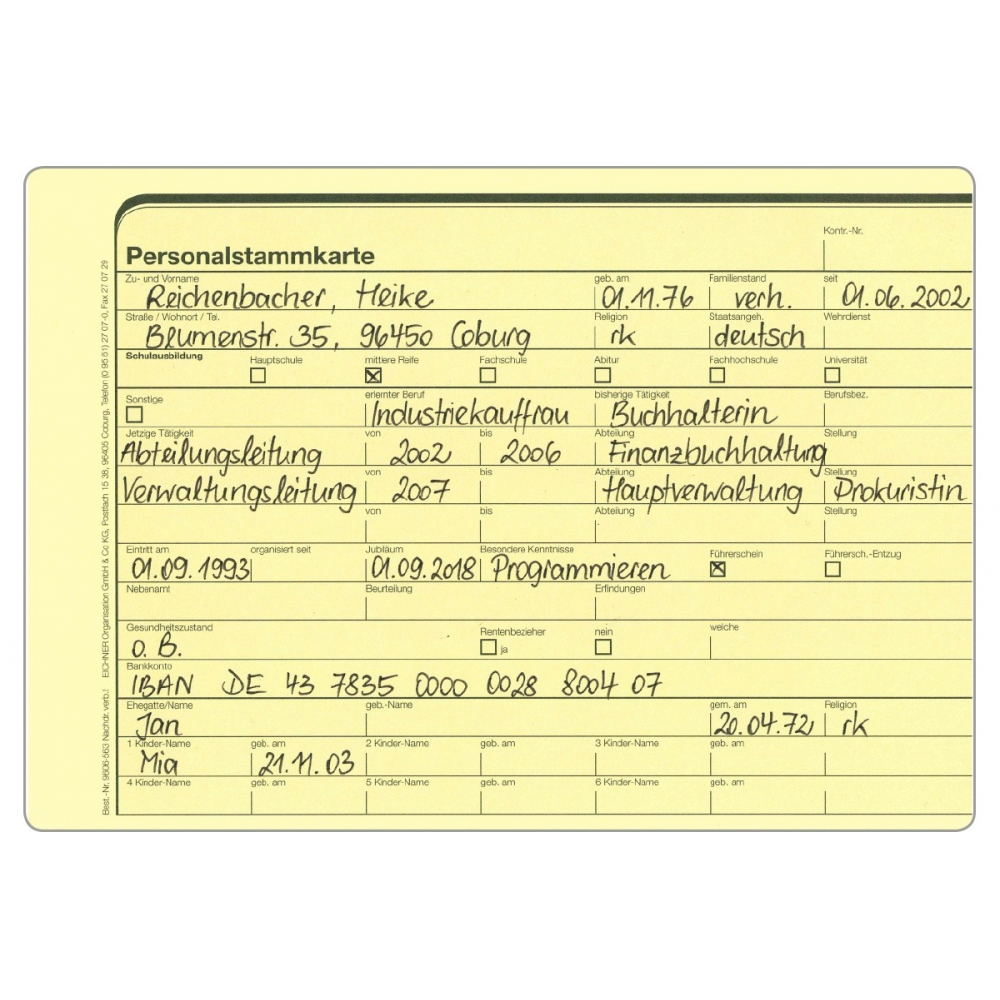 Kontr.-Nr.
Personalstammkarte
Zu- und Vorname geb. am Familienstand seit
Reichenbacher, Heike 01.11.76 verh. 01.06.2002
Straße / Wohnort / Tel. Religion Staatsangeh. Wehrdienst
Blumenstr. 35, 96450 Coburg rk deutsch
Schulausbildung Hauptschule mittlere Reife Fachschule Abitur Fachhochschule Universität
Sonstige erlernter Beruf bisherige Tätigkeit Berufsbez.
Industriekauffrau Buchhalterin
Jetzige Tätigkeit von bis Abteilung Stellung
Abteilungsleitung 2002 2006 Finanzbuchhaltung
von bis Abteilung Stellung
Verwaltungsleitung 2007 Hauptverwaltung Prokuristin
von bis Abteilung Stellung
Eintritt am organisiert seit Jubiläum Besondere Kenntnisse Führerschein Führersch.-Entzug
01.09.1993 01.09.2018 Programmieren
Nebenamt Beurteilung Erfindungen
Gesundheitszustand Rentenbezieher nein welche
o. B. ja
Bankkonto
IBAN DE 43 7835 0000 0028 8004 07
Ehegatte/Name geb.-Name gem. am Religion
Jan 20.04.72 rk
1 Kinder-Name geb. am 2 Kinder-Name geb. am 3 Kinder-Name geb. am
Mia 21.11.03
4 Kinder-Name geb. am 5 Kinder-Name geb. am 6 Kinder-Name geb. am
Best.-Nr. 9606-563 Nachdr. verb.! EICHNER Organisation GmbH & Co KG, Postfach 15 38, 96405 Coburg, Telefon (0 95 61) 27 07-0, Fax 27 07 29